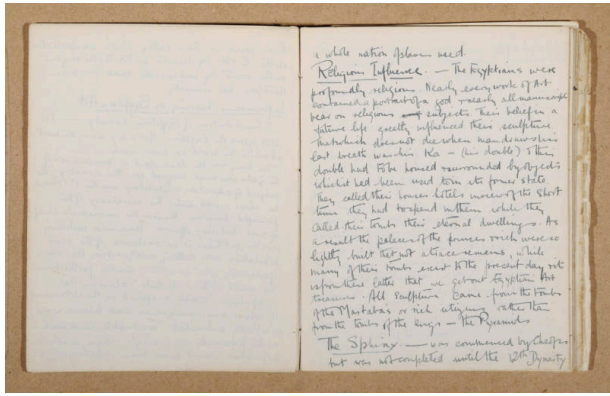 a whole nation of slaves need.
Religious Influence. — The Egyptians were
profoundly religious. Nearly every work of Art
contained a portrait of a god & nearly all manuscripts
bear on religious subjects. Their belief in a
future life greatly influenced their sculpture.
That which does not die when man draws his
last breath was his Ka — (his double) & this
double had to be housed & surrounded by objects
which it had been used to in its former state.
They called their houses hotels in view of the short
time they had to spend in them while they
called their tombs their eternal dwellings. As
a result the palaces of the princes & rich were so
lightly built that not a trace remains, while
many of their tombs exist to the present day & it
is from these latter that we get our Egyptian Art
treasures. All sculpture came from the tombs
of the Mastabas or rich citizens rather than
from the tombs of the kings — The Pyramids
The Sphinx — was commenced by Cheops
but was not completed until the 12th Dynasty